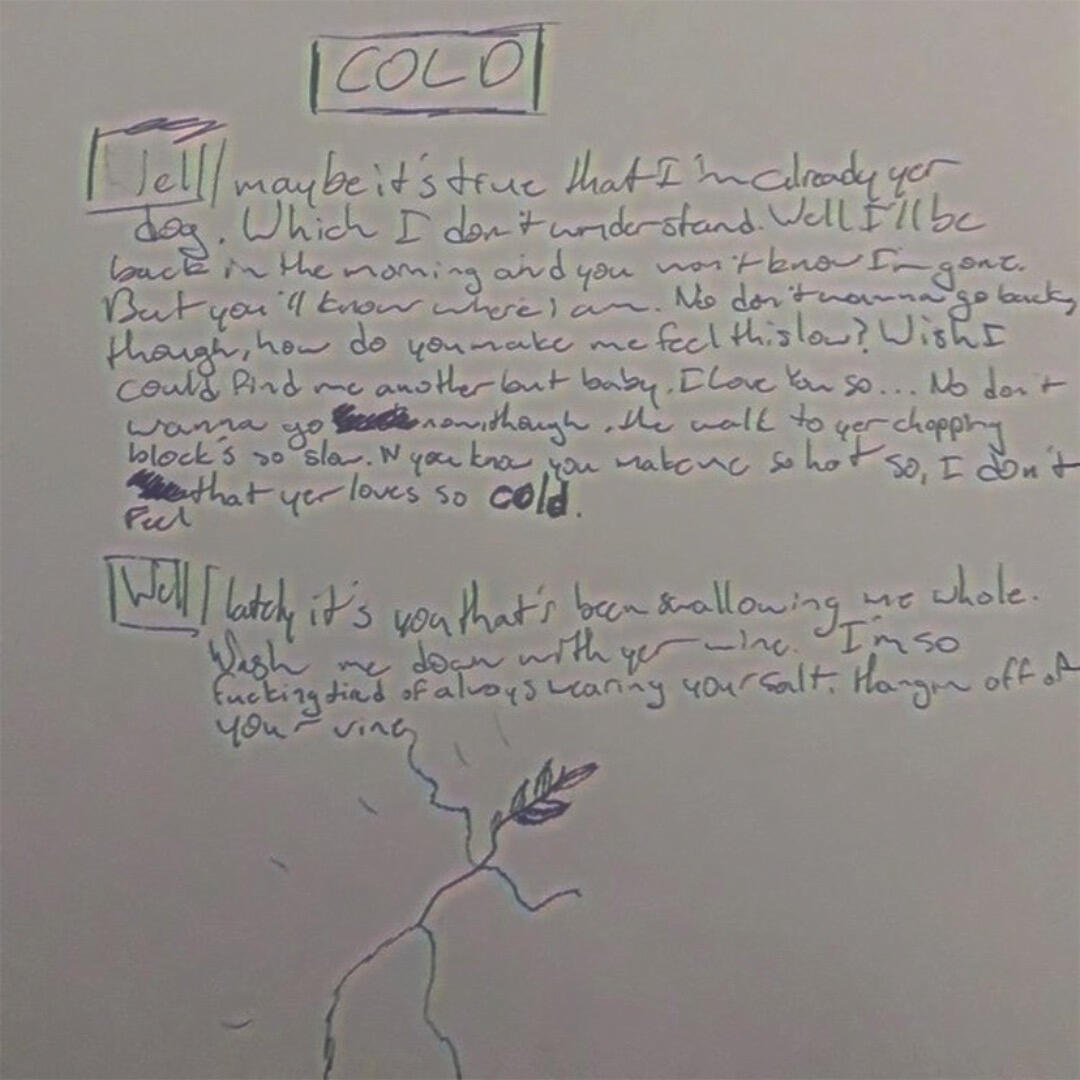 COLD
Well maybe it's true that I'm already yer
dog. Which I don't understand. Well I'll be
back in the morning and you won't know I'm gone.
But you'll know where I am. No don't wanna go back,
though, how do you make me feel this low? Wish I
could find me another but baby. I Love You so... No don't
wanna go now though. the walk to yer chopping
block's so slow. N you know you make me so hot so, I don't
that yer loves so cold.
Feel
Well lately it's you that's been swallowing me whole.
Wash me down with yer wine. I'm so
fucking tired of always wearing your salt. Hangin off of
your vine